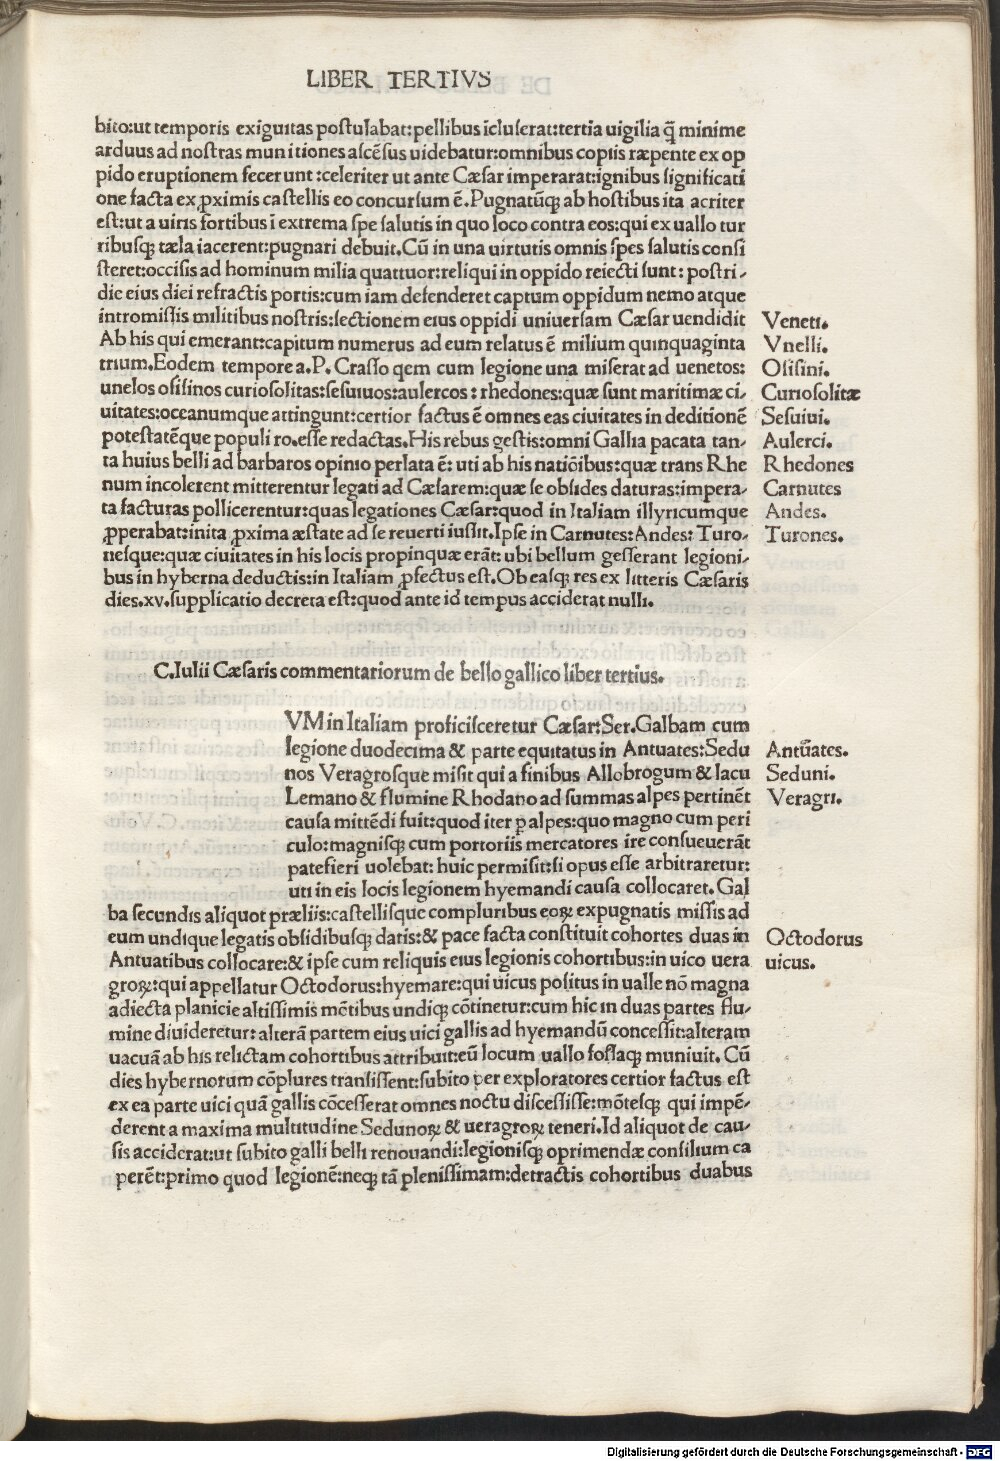 LIBER TERTIVS
bito:ut temporis exiguitas postulabat:pellibus īcluserat:tertia uigilia q̄ minime
arduus ad nostras munitiones ascēsus uidebatur:omnibus copiis ræpente ex op
pido eruptionem fecerunt:celeriter ut ante Cæsar imperarat:ignibus significati
one facta ex ꝓximis castellis eo concursum ē.Pugnatūqꝫ ab hostibus ita acriter
est:ut a uiris fortibus ī extrema spe salutis in quo loco contra eos:qui ex uallo tur
ribusqꝫ tæla iacerent:pugnari debuit.Cū in una uirtutis omnis spes salutis consi
steret:occisis ad hominum milia quattuor:reliqui in oppido reiecti sunt: postri-
die eius diei refractis portis:cum iam defenderet captum oppidum nemo atque
intromissis militibus nostris:sectionem eius oppidi uniuersam Cæsar uendidit
Ab his qui emerant:capitum numerus ad eum relatus ē milium quinquaginta
trium.Eodem tempore a.P.Crasso qem cum legione una miserat ad uenetos:
unelos osisinos curiosolitas:sesuiuos:aulercos:rhedones:quæ sunt maritimæ ci-
uitates:oceanumque attingunt:certior factus ē omnes eas ciuitates in deditionē
potestatēque populi ro.esse redactas.His rebus gestis:omni Gallia pacata tan-
ta huius belli ad barbaros opinio perlata ē: uti ab his natiōibus:quæ trans Rhe
num incolerent mitterentur legati ad Cæsarem:quæ se obsides daturas:impera-
ta facturas pollicerentur:quas legationes Cæsar:quod in Italiam illyricumque
ꝓperabat:inita ꝓxima æstate ad se reuerti iussit.Ipse in Carnutes:Andes:Turo-
nesque:quæ ciuitates in his locis propinquæ erāt:ubi bellum gesserant legioni-
bus in hyberna deductis:in Italiam ꝓfectus est.Ob easqꝫ res ex litteris Cæsaris
dies.xv.supplicatio decreta est:quod ante id tempus acciderat nulli.
Veneti.
Vnelli.
Osisini.
Curiosolitæ
Sesuiui.
Aulerci.
Rhedones
Carnutes
Andes.
Turones.
C.Iulii Cæsaris commentariorum de bello gallico liber tertius.
VM in Italiam proficisceretur Cæsar:Ser.Galbam cum
legione duodecima & parte equitatus in Antuates:Sedu
nos Veragrosque misit qui a finibus Allobrogum & lacu
Lemano & flumine Rhodano ad summas alpes pertinēt
causa mittēdi fuit:quod iter ꝑ alpes:quo magno cum peri
culo:magnisqꝫ cum portoriis mercatores ire consueuerāt
patefieri uolebat: huic permisit:si opus esse arbitraretur:
uti in eis locis legionem hyemandi causa collocaret.Gal
ba secundis aliquot præliis:castellisque compluribus eoꝝ expugnatis missis ad
eum undique legatis obsidibusqꝫ datis:& pace facta constituit cohortes duas in
Antuatibus collocare:& ipse cum reliquis eius legionis cohortibus:in uico uera
groꝝ:qui appellatur Octodorus:hyemare:qui uicus positus in ualle nō magna
adiecta planicie altissimis mōtibus undiqꝫ cōtinetur:cum hic in duas partes flu-
mine diuideretur: alterā partem eius uici gallis ad hyemandū concessit:alteram
uacuā ab his relictam cohortibus attribuit:eū locum uallo fossaqꝫ muniuit.Cū
dies hybernorum cōplures transissent:subito per exploratores certior factus est
ex ea parte uici quā gallis cōcesserat omnes noctu discessisse:mōtesqꝫ qui impē-
derent a maxima multitudine Sedunoꝝ & ueragroꝝ teneri.Id aliquot de cau-
sis acciderat:ut subito galli belli renouandi:legionisqꝫ oprimendæ consilium ca
perēt:primo quod legionē:neqꝫ tā plenissimam:detractis cohortibus duabus
Antūates.
Seduni.
Veragri.
Octodorus
uicus.
Digitalisierung gefördert durch die Deutsche Forschungsgemeinschaft - DFG